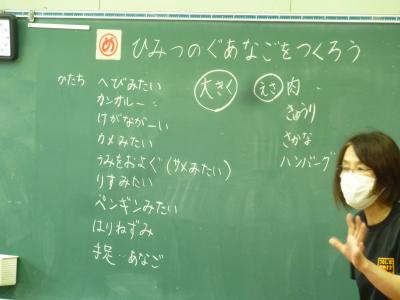 め ひみつのぐあなごをつくろう
かたち へびみたい
カンガルー〃
けがながーい
カメみたい
うみをおよぐ(サメみたい)
りすみたい
ペンギンみたい
はりねずみ
手足‥あなご
大きく
えさ 肉
きゅうり
さかな
ハンバーグ